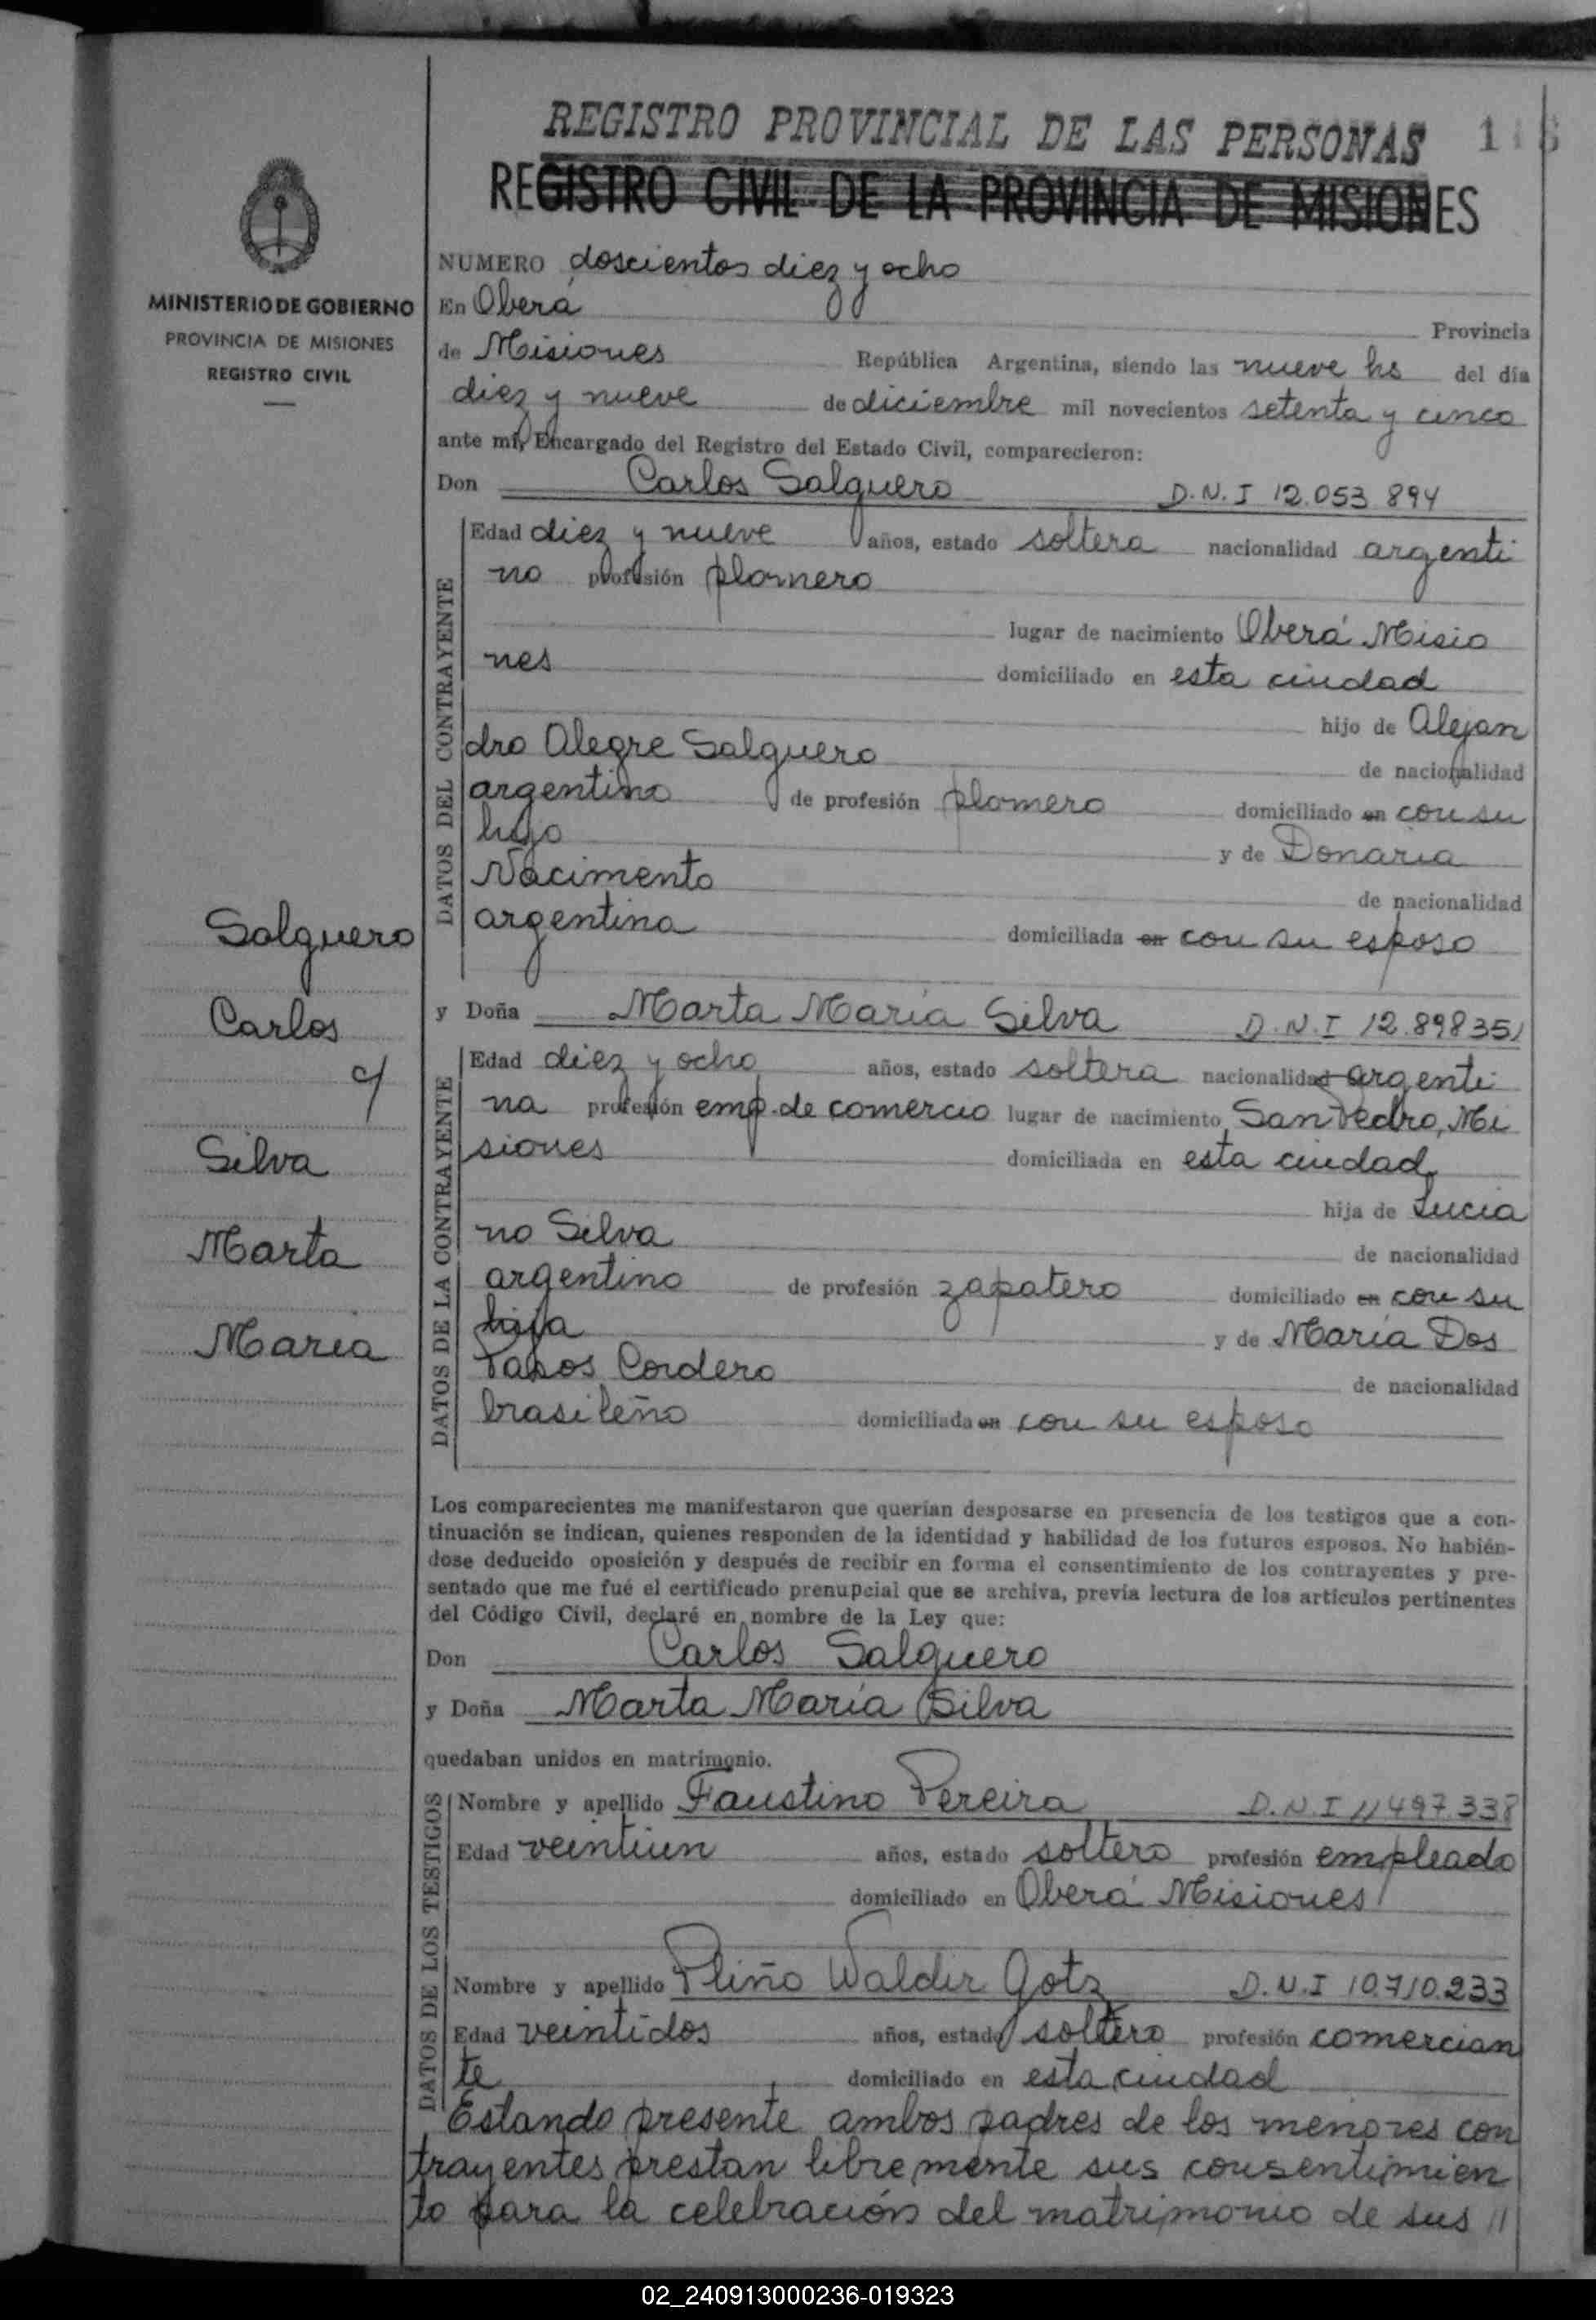 REGISTRO PROVINCIAL DE LAS PERSONAS
REGISTRO CIVIL DE LA PROVINCIA DE MISIONES
MINISTERIO DE GOBIERNO
PROVINCIA DE MISIONES
REGISTRO CIVIL
NUMERO doscientos diez y ocho
En Oberá Provincia
de Misiones República Argentina, siendo las nueve hs del día
diez y nueve de diciembre mil novecientos setenta y cinco
ante mí, Encargado del Registro del Estado Civil, comparecieron:
Don Carlos Salguero D.N.I 12.053.894
DATOS DEL CONTRAYENTE
Edad diez y nueve años, estado soltera nacionalidad argenti
no profesión plomero
lugar de nacimiento Oberá Misio
nes domiciliado en esta ciudad
hijo de Alejan
dro Alegre Salguero de nacionalidad
argentino de profesión plomero domiciliado en con su
hijo y de Donaria
Nacimento de nacionalidad
argentina domiciliada en con su esposo
Salguero
Carlos
y
Silva
Marta
María
y Doña Marta María Silva D.N.I 12.898351
DATOS DE LA CONTRAYENTE
Edad diez y ocho años, estado soltera nacionalidad argenti
na profesión emp. de comercio lugar de nacimiento San Pedro, Mi
siones domiciliada en esta ciudad
hija de Lucia
no Silva de nacionalidad
argentino de profesión zapatero domiciliado en con su
hija y de María Dos
Pasos Cordero de nacionalidad
brasileño domiciliada en con su esposo
Los comparecientes me manifestaron que querían desposarse en presencia de los testigos que a con-
tinuación se indican, quienes responden de la identidad y habilidad de los futuros esposos. No habién-
dose deducido oposición y después de recibir en forma el consentimiento de los contrayentes y pre-
sentado que me fué el certificado prenupcial que se archiva, previa lectura de los artículos pertinentes
del Código Civil, declaré en nombre de la Ley que:
Don Carlos Salguero
y Doña Marta María Silva
quedaban unidos en matrimonio.
DATOS DE LOS TESTIGOS
Nombre y apellido Faustino Pereira D.N.I 11497.338
Edad veintiun años, estado soltero profesión empleado
domiciliado en Oberá Misiones
Nombre y apellido Pliño Waldir Gotz D.N.I 10.710.233
Edad veintidos años, estado soltero profesión comercian
te domiciliado en esta ciudad
Estando presente ambos padres de los menores con
trayentes prestan libremente sus consentimien
to para la celebración del matrimonio de sus //
02_240913000236-019323